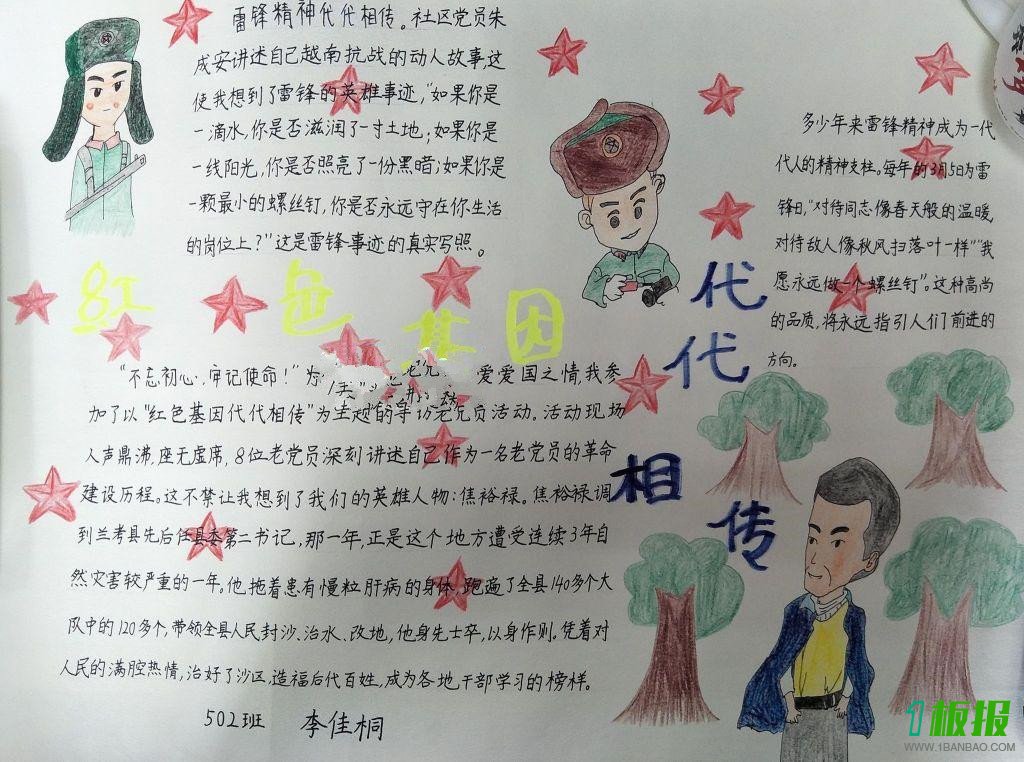 雷锋精神代代相传。社区党员朱
成安讲述自己越南抗战的动人故事,这
使我想到了雷锋的英雄事迹,“如果你是
一滴水,你是否滋润了一寸土地;如果你是
一线阳光,你是否照亮了一份黑暗;如果你是
一颗最小的螺丝钉,你是否永远守在你生活
的岗位上?”这是雷锋事迹的真实写照。
多少年来雷锋精神成为一代
代人的精神支柱。每年的3月5日为雷
锋日,“对待同志像春天般的温暖,
对待敌人像秋风扫落叶一样”“我
愿永远做一个螺丝钉”。这种高尚
的品质,将永远指引人们前进的
方向。
红色基因
代代相传
“不忘初心,牢记使命!”为 爱爱国之情,我参
加了以“红色基因代代相传”为主题的寻访老党员活动。活动现场
人声鼎沸,座无虚席,8位老党员深刻讲述自己作为一名老党员的革命
建设历程。这不禁让我想到了我们的英雄人物:焦裕禄。焦裕禄调
到兰考县先后任县委第二书记,那一年,正是这个地方遭受连续3年自
然灾害较严重的一年。他拖着患有慢粒肝病的身体,跑遍了全县140多个大
队中的120多个,带领全县人民封沙、治水、改地,他身先士卒,以身作则。凭着对
人民的满腔热情,治好了沙区,造福后代百姓,成为各地干部学习的榜样。
502班 李佳桐
1板报
WWW.1BANBAO.COM